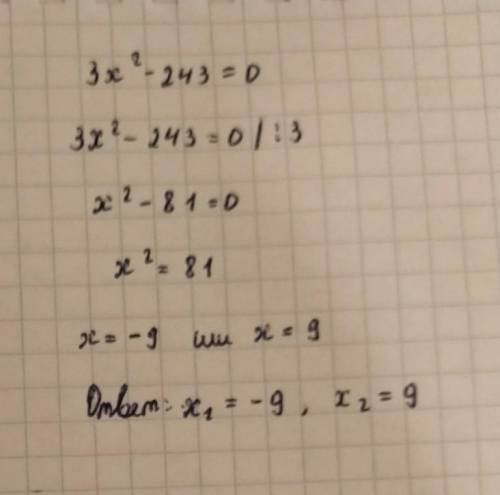 3x² - 243 = 0
3x² - 243 = 0 / : 3
x² - 81 = 0
x² = 81
x = -9 или x = 9
Ответ: x₁ = -9, x₂ = 9